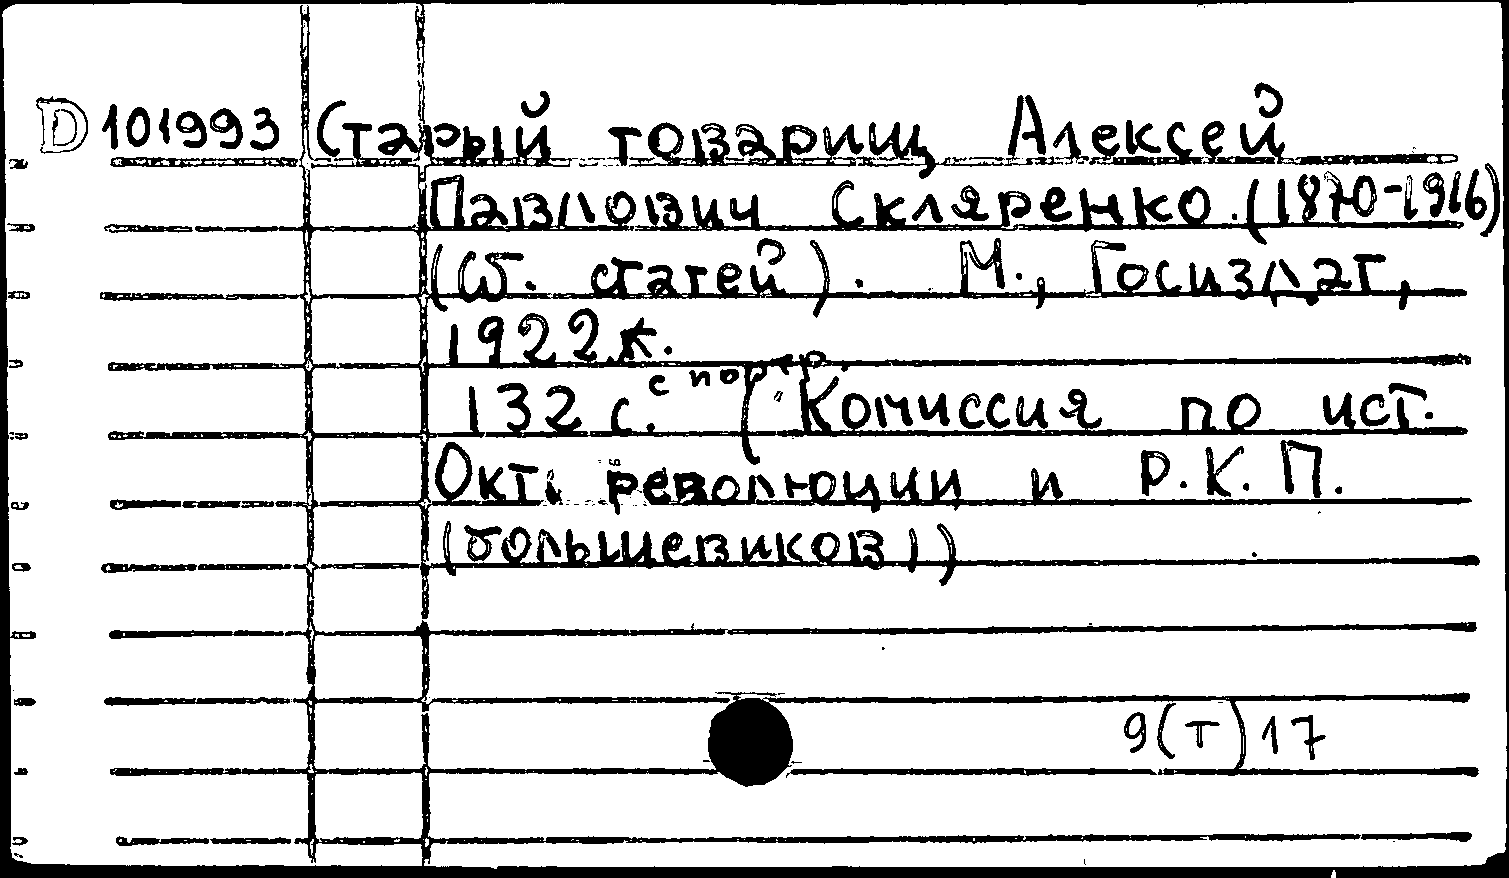 D 101993 Старый товарищ Алексей
Павлович Скляренко (1870-1916)
(Сб. статей). М., Госиздат,
1922.
132 с. с портр. (Комиссия по ист.
Окт. революции и Р.К.П.
(большевиков))
9(т)17